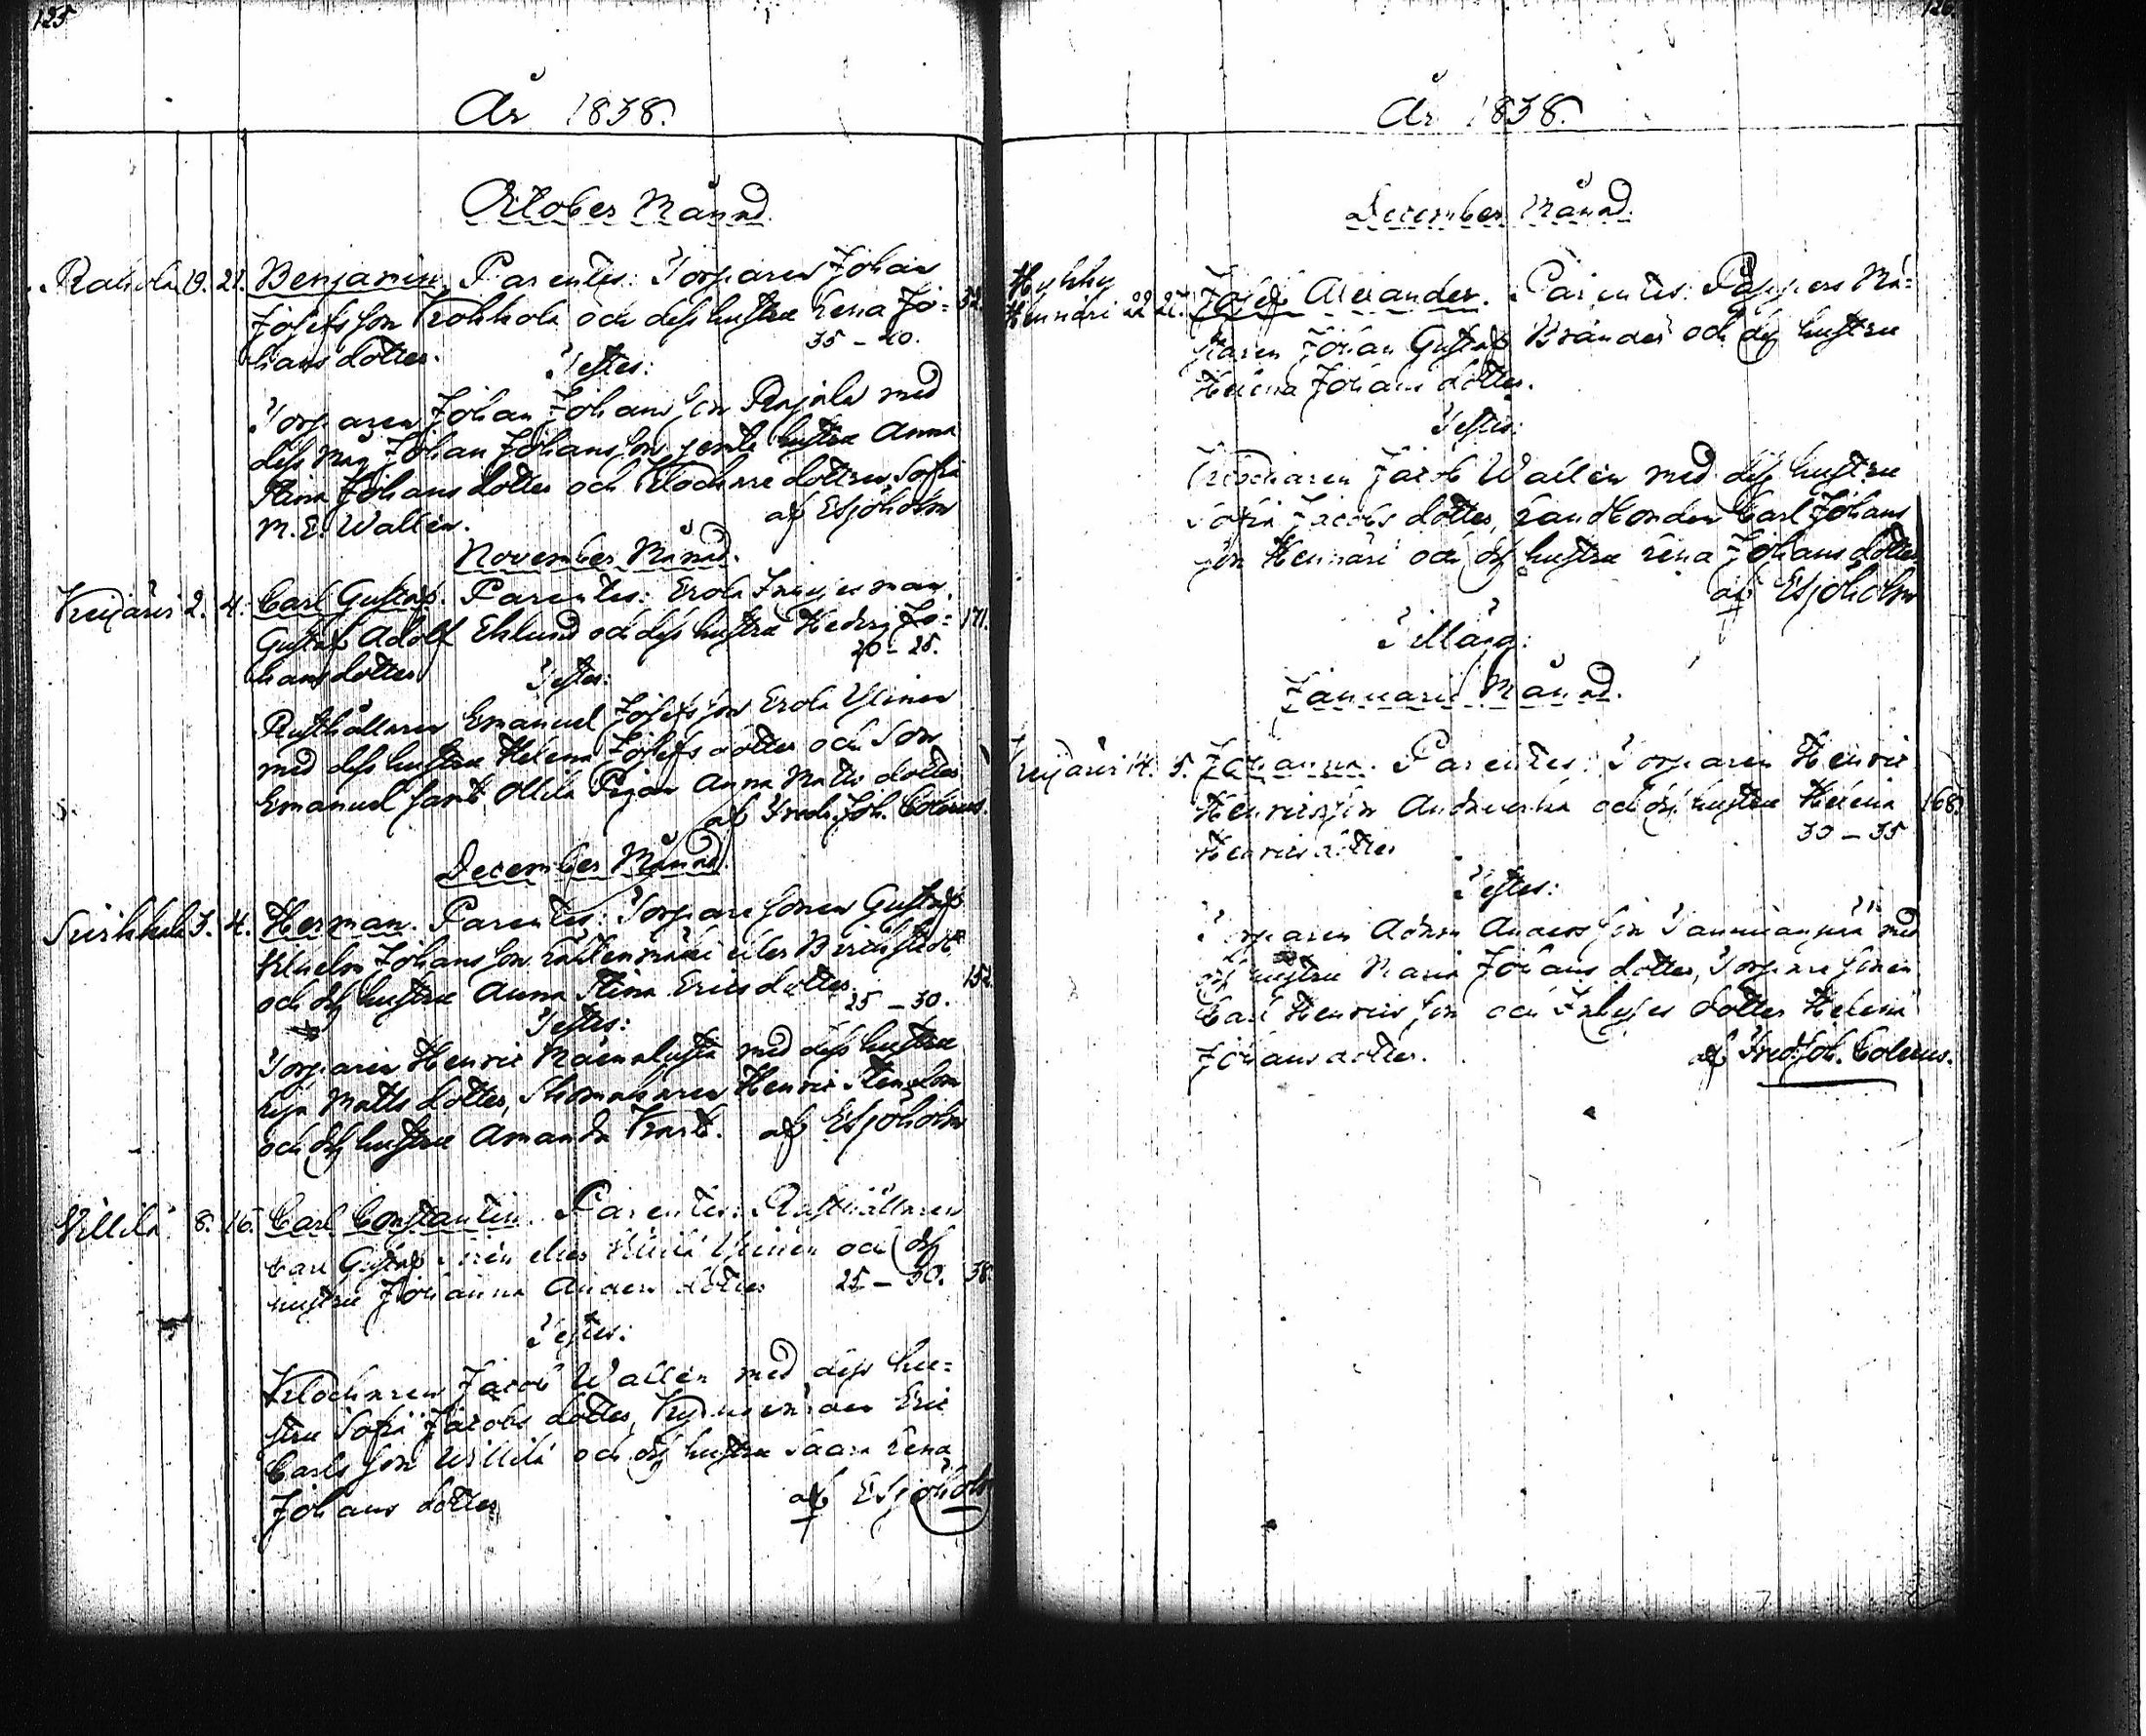 125
År 1838.
October Månad.
Rahola 19. 21. Benjamin. Parentes: Torparen Johan
Josefs son Krohkola och dess hustru Lena Jo= 52.
hans dotter. 35 – 40.
Testes:
Torparen Johan Johans son Rajala med
dess måg Johan Johans son jemte hustru Anna
Stina Johans dotter och Klockare dottren Sofia
M. E. Wallen. af Esjöholm
November Månad.
Kuijärvi 2. 4. Carl Gustaf. Parentes: Erola Inhyses man
Gustaf Adolf Eklund och dess hustru Hedvig Jo= 171.
hans dotter 20 – 25.
Testes:
Rusthållaren Emanuel Josefs son Erola Yöinen
med dess hustru Helena Josefs dotter och Son
Emanuel samt Ollila Pigan Anna Matts dotter
af Fredr. Joh. Colerus.
December Månad.
3. 4. Herman. Parentes: Torpare sonen Gustaf
Vilhelm Johans son eller
och dess hustru Anna Stina Erics dotter. 152
25 – 30.
Testes:
Torparen Henric med dess hustru
Matts dotter, Skomakaren Henric
och dess hustru Amanda af Esjöholm
Villilä 8. 16. Carl Constantin. Parentes: Rusthållaren
Carl Gustaf eller Villilä och dess
hustru Johanna Anders dotter 25 – 30. 38.
Testes:
Klockaren Jacob Wallen med dess hu=
stru Sofia Jacobs dotter, Eric
Carls son Willilä och dess hustru Saara Lena
Johans dotter af Esjöholm
126.
År 1838.
December Månad.
Hyhky
Hennäri 22 27. Josef Alexander. Parentes: Pappers Mä=
staren Johan Gustaf Brander och dess hustru
Helena Johans dotter.
Testes:
Klockaren Jacob Wallen med dess hustru
Sofia Jacobs dotter, Landbonden Carl Johans
son Hennäri och dess hustru Lena Johans dotter
af Esjöholm
Tilläg:
Januarii Månad.
Kuijärvi 14. 5. Johanna. Parentes: Torparen Henric
Henrics son och dess hustru Helena 168.
Henrics dotter 30 – 35
Testes:
Torparen Adam Anders son med
dess hustru Maria Johans dotter, Torpare sonen
Carl Henrics son och Inhyses dotter Helena
Johans dotter. af Fred. Joh. Colerus.